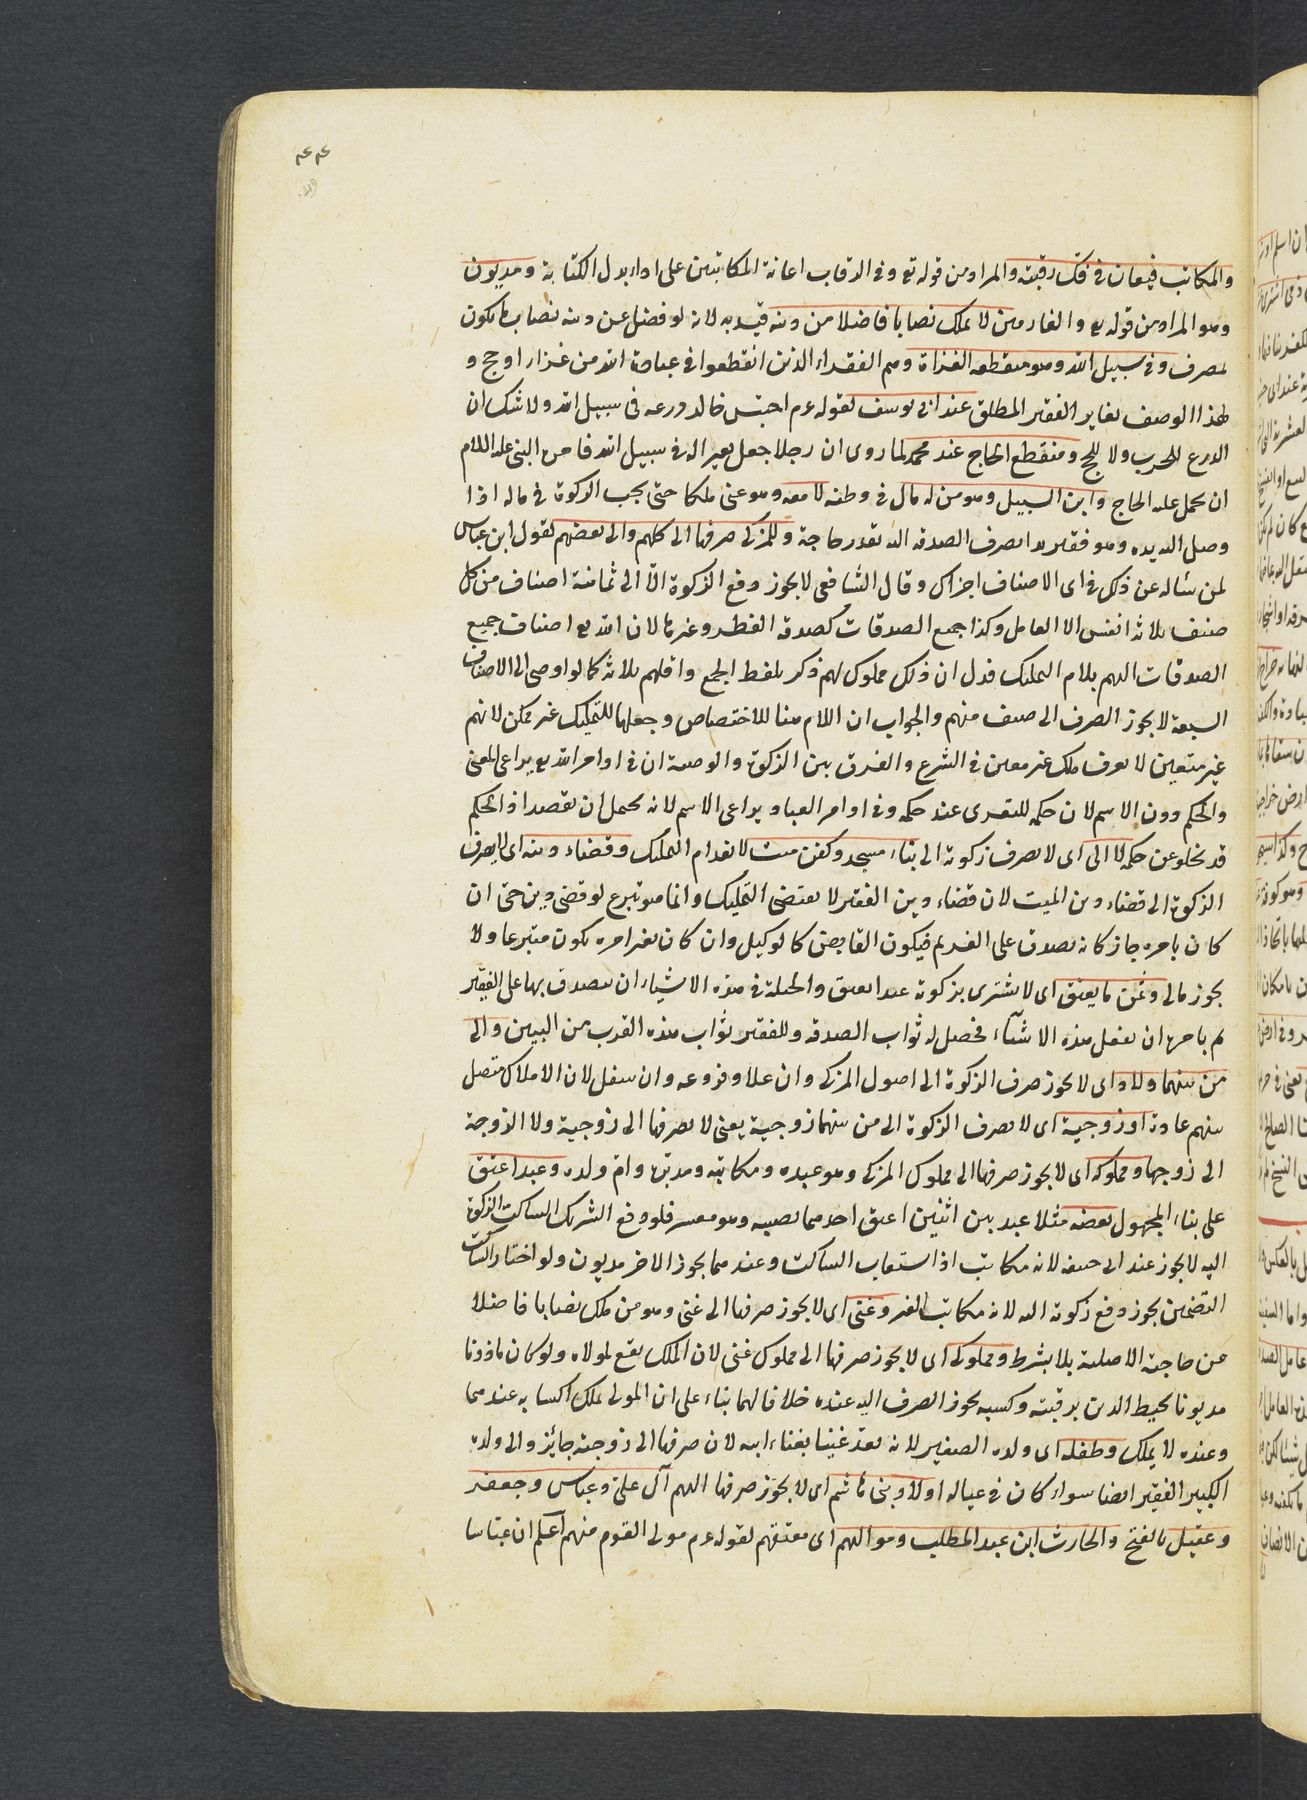 ٤٤
والمكاتب فيعان في فك رقبته والمراد من قوله تع وفي الرقاب اعانة المكاتبين على اداء بدل الكتابة ومديون
وهو المراد من قوله تع والغارمين لا يملك نصابا فاضلا من دينه قيد به لانه لو فضل عن دينه نصاب لا يكون
لمصرف وفي سبيل الله وهو منقطعه الغزاة وهم الفقراء الذين انقطعوا في عبادة الله من غزاء اوحج و
لهذا الوصف يغاير الفقير المطلق عند ابي يوسف لقوله ءم احتبس خالد درعه في سبيل الله ولا شك ان
الدرع للحرب ولا للحج ومنقطع الحاج عند محمد لما روى ان رجلا جعل بعيرا له في سبيل الله فامره النبي عليه السلام
ان يحمل عليه الحاج وابن السبيل وهو من له مال في وطنه لا معه وهو غني ملكا حتى يجب الزكوة في ماله اذا
وصل اليه يده وهو فقير يدا يصرف الصدقة اليه بقدر حاجة وللمزكى صرفها الى كلهم والى بعضهم لقول ابن عباس
لمن سئاله عن ذلك في اى الاصناف اجزاك وقال الشافعى لا يجوز دفع الزكوة الا الى ثمانية اصناف من كل
صنف ثلاثة انفس الا العامل وكذا جميع الصدقات كصدقة الفطر وغيرها لان الله تع اضاف جميع
الصدقات اليهم بلام التمليك فدل ان ذلك مملوك لهم ذكر بلفظ الجمع واقلهم ثلاثة كما لو اوصى الى الاصناف
السبعة لا يجوز الصرف الى صنف منهم والجواب ان اللام هنا للاختصاص وجعلها للتمليك غير ممكن لانهم
غير متعين لا يعرف ملك غير معين في الشرع والفرق بين الزكوة والوصية ان في اوامر الله تع يراعى المعنى
والحكم دون الاسم لان حكمه للتعدى عند حكمه وفي اوامر العباد يراعى الاسم لانه يحمل ان يقصد اذ الحكم
قد يخلو عن حكمه لا الى اى لا يصرف زكوته الى بناء مسجد وكفن ميت لانعدام التمليك وقضاء دينه اى لا يصرف
الزكوة الى قضاء دين الميت لان قضاء دين الفقير لا يقتضى التمليك وانما هو تبرع لو قضى دين حى ان
كان بامره جاز كانه تصدق على الغريم فيكون القابض كالوكيل وان كان بغير امره يكون متبرعا ولا
يجوز مالى وثمن ما يعتق اى لا يشترى بزكوته عبدا يعتق والحيلة في هذه الاشياء ان يتصدق بها على الفقير
ثم يامره ان يفعل هذه الاشياء فيحصل له ثواب الصدقة وللفقير ثواب هذه القرب من البين والى
من بينهما ولاد اى لا يجوز صرف الزكوة الى اصول المزكى وان علا وفروعه وان سفل لان الاملاك متصل
بينهم عادة او زوجية اى لا يصرف الزكوة الى من بينهما زوجية يعنى لا يصرفها الى زوجية ولا الزوجة
الى زوجها ومملوكه اى لا يجوز صرفها الى مملوك المزكى وهو عبده ومكاتبه ومدبره وام ولده وعبد اعتق
على بناء المجهول بعضه مثلا عبد بين اثنين اعتق احدهما نصيبه وهو معسر فلو دفع الشريك الساكت الزكوة
اليه لا يجوز عند ابى حنيفه لانه مكاتب اذا استعاب الساكت وعندهما يجوز الاخر مديون ولو اختار الساكت
التضمين يجوز دفع زكوته اليه لانه مكاتب الغير وغنى اى لا يجوز صرفها الى غنى وهو من ملك نصابا فاضلا
عن حاجته الاصلية بلا بشرط ومملوكه اى لا يجوز صرفها الى مملوك غنى لان الملك يقع لمولاه ولو كان ماذونا
مديونا يحيط الدين برقبته وكسبه يجوز الصرف اليه عنده خلافا لهما بناء على ان المولى يملك اكسابه عندهما
وعنده لا يملك وطفله اى ولده الصغير لانه يعد غنيا بغناء ابيه لان صرفها الى زوجته جايز والى ولده
الكبير الفقير ايضا سواء كان في عياله او لا وبنى هاشم اى لا يجوز صرفها اليهم آل على وعباس وجعفر
وعقيل بالفتح والحارث ابن عبد المطلب ومواليهم اى معتقهم لقوله ءم مولى القوم منهم اعلم ان عباسا